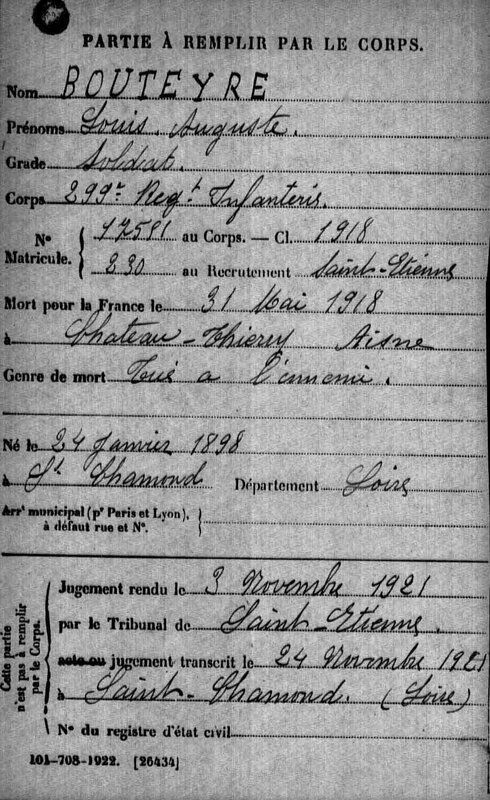 PARTIE À REMPLIR PAR LE CORPS.
Nom BOUTEYRE
Prénoms Louis Auguste.
Grade Soldat.
Corps 299e Regt Infanterie.
N° Matricule. 17581 au Corps. — Cl. 1918
230 au Recrutement Saint-Etienne
Mort pour la France le 31 Mai 1918
à Chateau-Thierry Aisne
Genre de mort Tué a l'ennemi.
Né le 24 Janvier 1898
à St Chamond Département Loire
Arrt municipal (pr Paris et Lyon),
à défaut rue et N°.
Cette partie
n'est pas à remplir
par le Corps.
Jugement rendu le 3 Novembre 1921
par le Tribunal de Saint-Etienne.
acte ou jugement transcrit le 24 Novembre 1921
à Saint-Chamond. (Loire)
N° du registre d'état civil
101-708-1922. [26434]